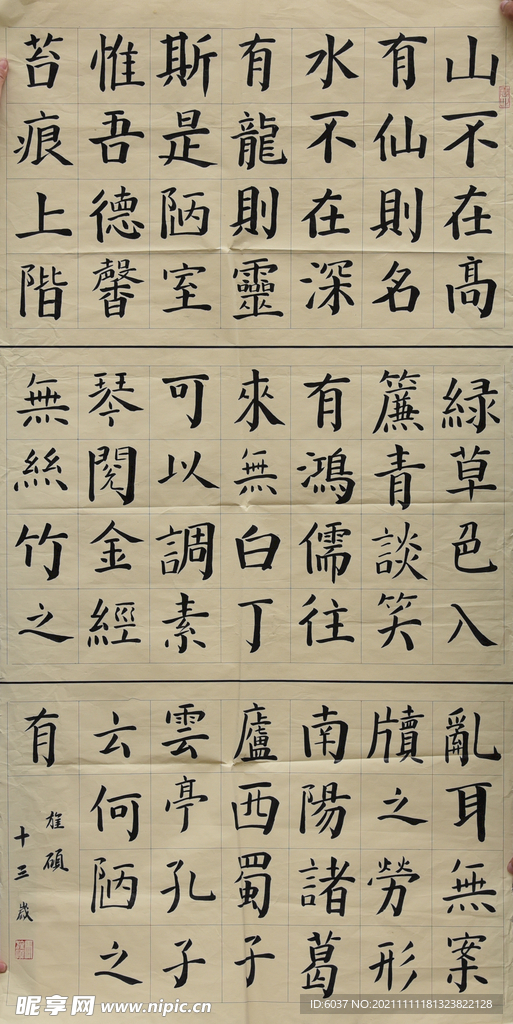 山不在髙
有仙則名
水不在深
有龍則靈
斯是陋室
惟吾德馨
苔痕上階
緑草色入
簾青談笑
有鴻儒往
來無白丁
可以調素
琴閱金經
無絲竹之
亂耳無案
牘之勞形
南陽諸葛
廬西蜀子
雲亭孔子
云何陋之
有
碩
十三歲
昵享网 www.nipic.cn
ID:6037 NO:20211111181323822128